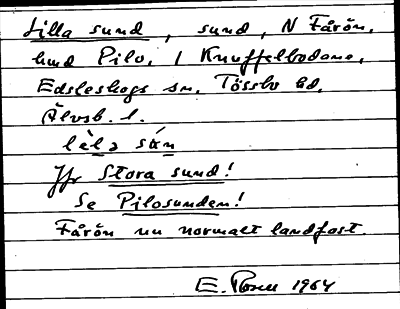 Lilla sund, sund, N Fårön,
hmd Pilo, i Knuffelbodane,
Edsleskogs sn, Tössbo hd,
Älvsb. l.
lèla sún
Jfr Stora sund!
Se Pilosunden!
Fårön nu normalt landfast.
E. Rosell 1964